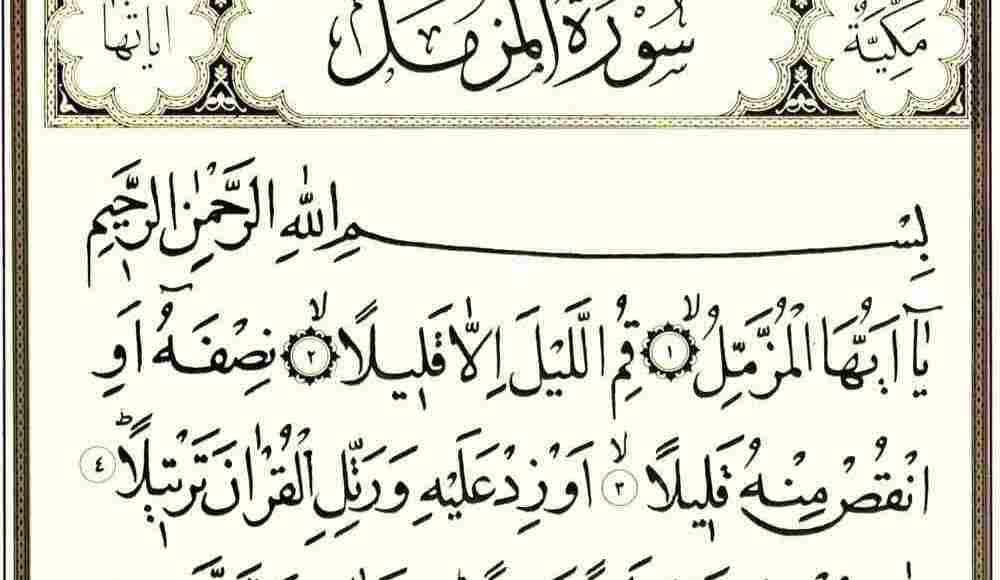 مكية سورة المزمل اياتها
بِسْمِ اللّٰهِ الرَّحْمٰنِ الرَّحِيمِ
يَٓا اَيُّهَا الْمُزَّمِّلُۙ ١ قُمِ الَّيْلَ اِلَّا قَلٖيلًاۙ ٢ نِصْفَهُٓ اَوِ
انْقُصْ مِنْهُ قَلٖيلًاۙ ٣ اَوْ زِدْ عَلَيْهِ وَرَتِّلِ الْقُرْاٰنَ تَرْتٖيلًاۜ ٤